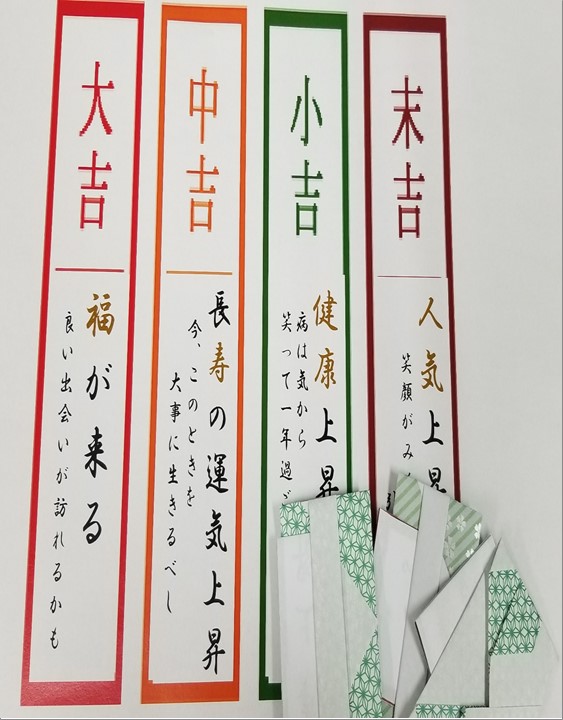 大吉
福が来る
良い出会いが訪れるかも
中吉
長寿の運気上昇
今、このときを
大事に生きるべし
小吉
健康上昇
病は気から
笑って一年過
末吉
人気上昇
笑顔がみ